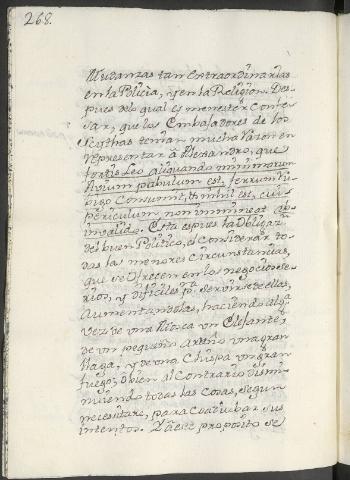 268.
Mudanzas tan extraordinarias
en la Policia, y en la Religion. Des-
pues delo qual es menester confe-
sar, que los Embajadores de los
Scythas tenian mucha razon en
representar à Alessandro, que
fortis Leo aliquando minimorum
Avium pabulum est, ferrum ru-
bigo Consumit, & nihil est, cuis
periculum non immineat ab
invalido. Esta es pues la Obligaz.n
del buen Politico, el Considerar to-
das las menores Circunstancias,
que se Ofrecen en los negocios se-
rios, y dificiles p.a servirse de ellas,
aumentandolas, haciendo alg.a
vez de una Mosca un Elefante,
de un pequeño Araño una gran
llaga, y de una Chispa un gran
fuego; ò bien al Contrario dismi-
nuiendo todas las Cosas, segun
necesitare, para Coadiubar sus
intentos. Y à este proposito se